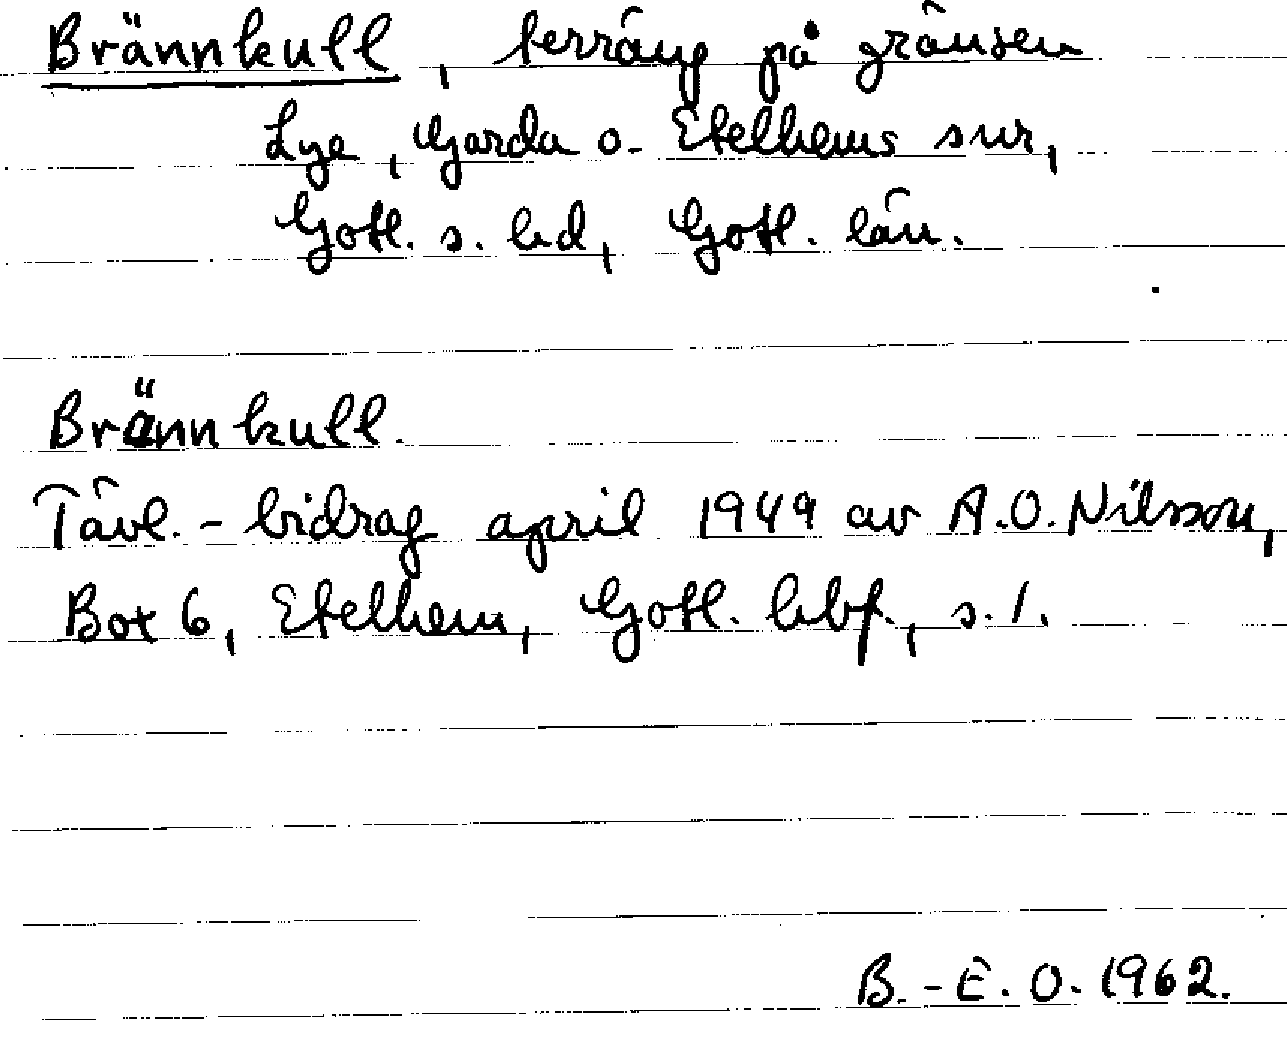 Brännkull, terräng på gränsen
Lye, Garda o. Etelhems snr,
Gotl. s. hd, Gotl. län.
Brännkull.
Tävl.-bidrag april 1949 av A.O. Nilsson,
Box 6, Etelhem, Gotl. hbf., s. 1.
B.-E. O. 1962.